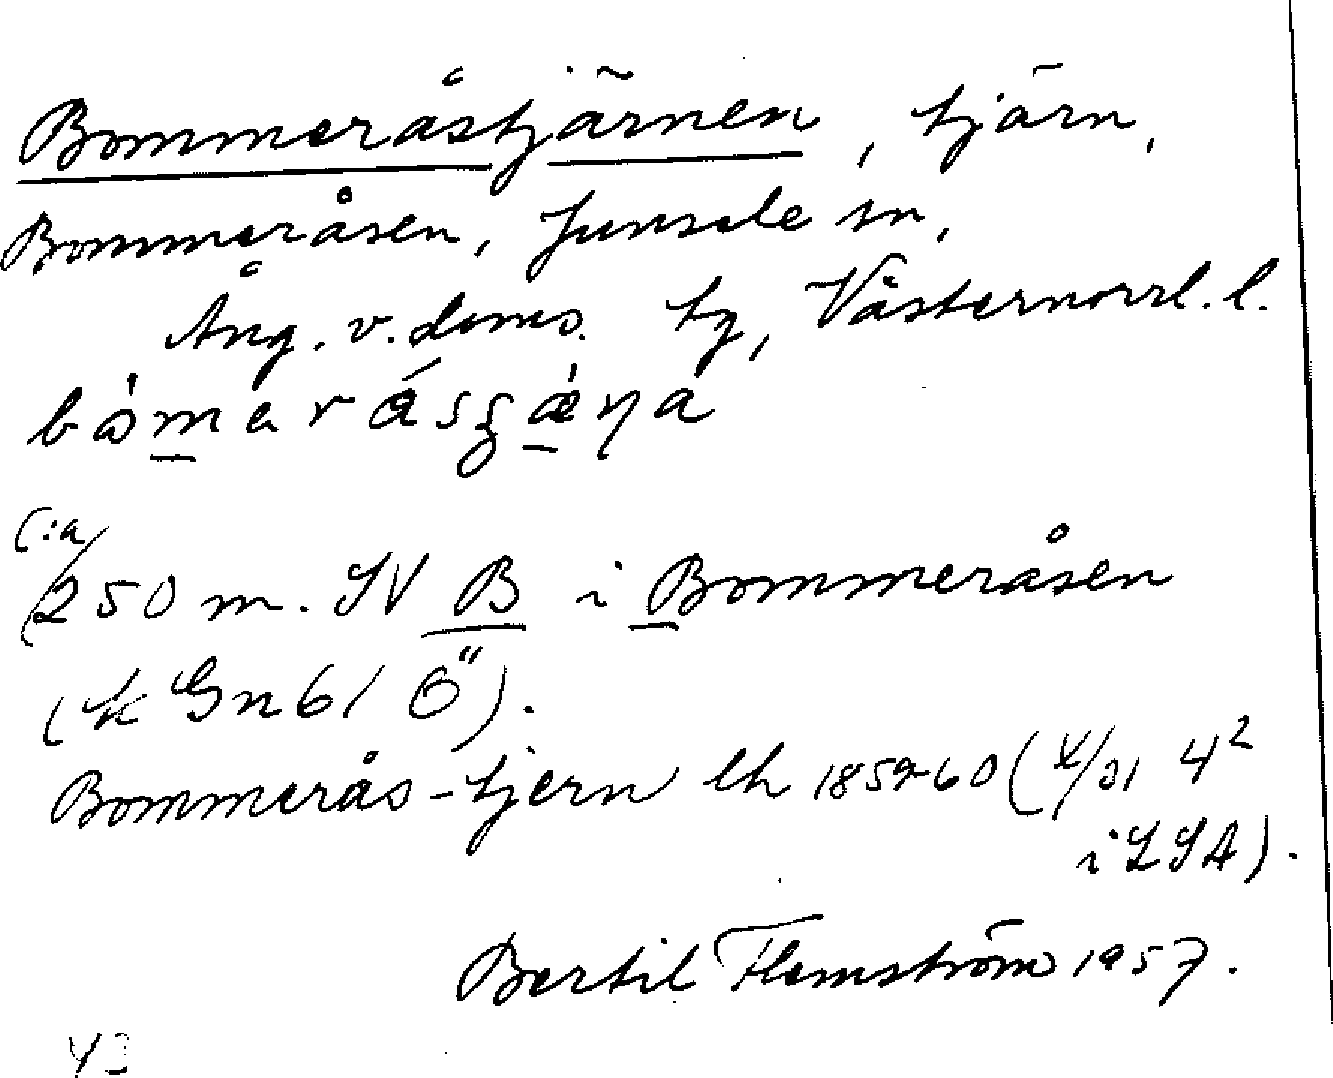 Bommeråstjärnen, tjärn,
Bommeråsen, Junsele sn,
Ång. v. doms. tg, Västernorrl. l.
(:a
250 m. SV B i Bommeråsen
(k Gn 61 Ö").
Bommerås-tjern lh 1859-60 (V/01 4²
i LSA).
Bertil Flemström 1957.
43